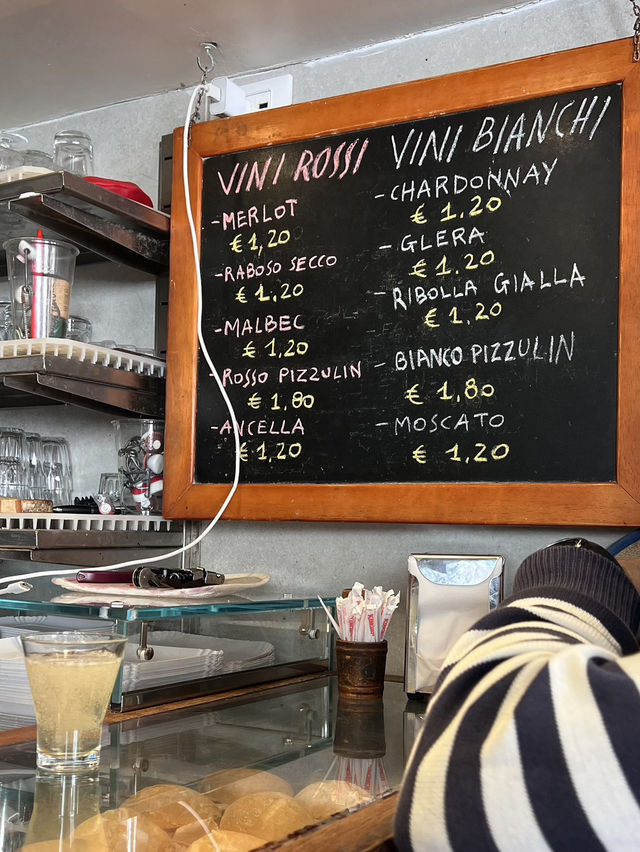 VINI ROSSI
-MERLOT
€ 1,20
-RABOSO SECCO
€ 1.20
-MALBEC
€ 1,20
-ROSSO PIZZULIN
€ 1,80
-ANCELLA
€ 1,20
VINI BIANCHI
-CHARDONNAY
€ 1.20
-GLERA
€ 1.20
-RIBOLLA GIALLA
€ 1.20
-BIANCO PIZZULIN
€ 1,80
-MOSCATO
€ 1,20